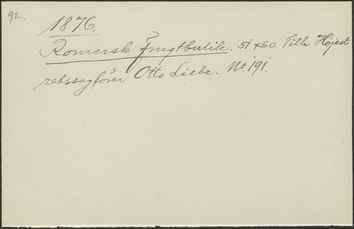 92.
1876.
Romersk Frugtbutik. 51 x 60. Tilh. Højeste
retssagfører Otto Liebe. No 191.